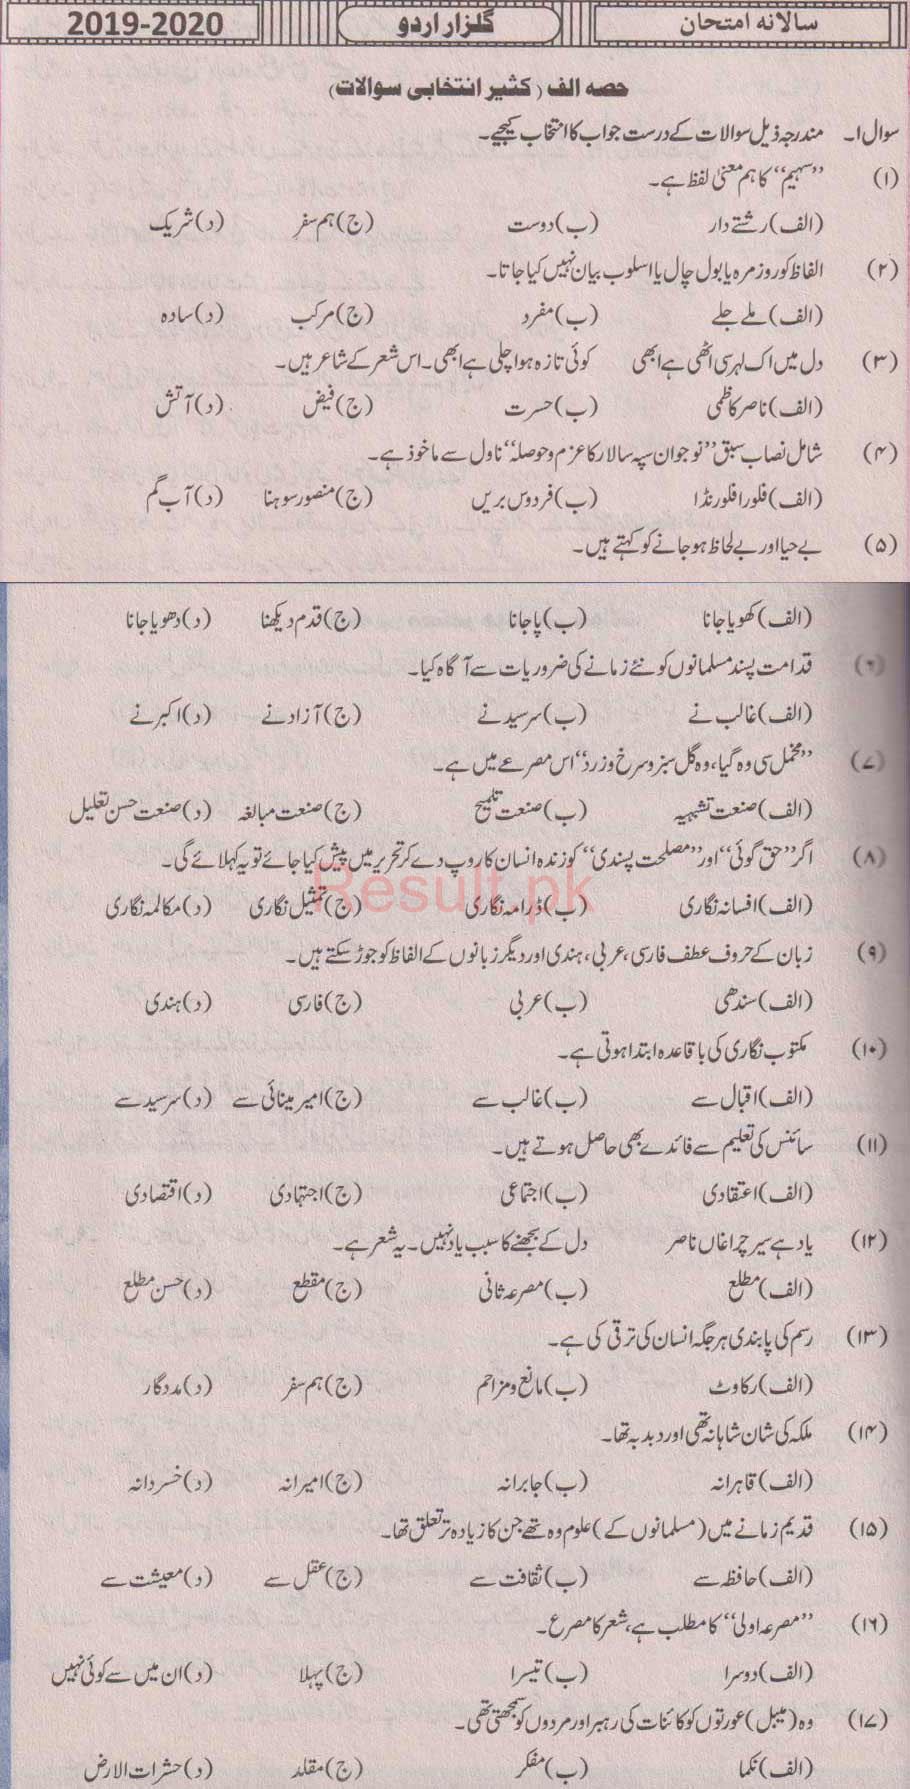 سالانہ امتحان گلزار اردو 2019-2020
حصہ الف (کثیر انتخابی سوالات)
سوال ۱۔ مندرجہ ذیل سوالات کے درست جواب کا انتخاب کیجیے۔
(۱) ”سہیم“ کا ہم معنیٰ لفظ ہے۔
(الف) رشتے دار (ب) دوست (ج) ہم سفر (د) شریک
(۲) الفاظ کو روزمرہ یا بول چال یا اسلوب بیان نہیں کیا جاتا۔
(الف) ملے جلے (ب) مفرد (ج) مرکب (د) سادہ
(۳) دل میں اک لہر سی اٹھی ہے ابھی کوئی تازہ ہوا چلی ہے ابھی۔ اس شعر کے شاعر ہیں۔
(الف) ناصر کاظمی (ب) حسرت (ج) فیض (د) آتش
(۴) شامل نصاب سبق ”نوجوان سپہ سالار کا عزم و حوصلہ“ ناول سے ماخوذ ہے۔
(الف) فلورا فلورنڈا (ب) فردوس بریں (ج) منصور سوہنا (د) آب گم
(۵) بے حیا اور بے لحاظ ہو جانے کو کہتے ہیں۔
(الف) کھویا جانا (ب) پا جانا (ج) قدم دیکھنا (د) دھویا جانا
(۶) قدامت پسند مسلمانوں کو نئے زمانے کی ضروریات سے آگاہ کیا۔
(الف) غالب نے (ب) سرسید نے (ج) آزاد نے (د) اکبر نے
(۷) ”مخمل سی وہ گیا، وہ گل سبز و سرخ و زرد“ اس مصرعے میں ہے۔
(الف) صنعت تشبیہ (ب) صنعت تلمیح (ج) صنعت مبالغہ (د) صنعت حسن تعلیل
(۸) اگر ”حق گوئی“ اور ”مصلحت پسندی“ کو زندہ انسان کا روپ دے کر تحریر میں پیش کیا جائے تو یہ کہلائے گی۔
Result.pk
(الف) افسانہ نگاری (ب) ڈرامہ نگاری (ج) تمثیل نگاری (د) مکالمہ نگاری
(۹) زبان کے حروف عطف فارسی، عربی، ہندی اور دیگر زبانوں کے الفاظ کو جوڑ سکتے ہیں۔
(الف) سندھی (ب) عربی (ج) فارسی (د) ہندی
(۱۰) مکتوب نگاری کی باقاعدہ ابتدا ہوتی ہے۔
(الف) اقبال سے (ب) غالب سے (ج) امیر مینائی سے (د) سرسید سے
(۱۱) سائنس کی تعلیم سے فائدے بھی حاصل ہوتے ہیں۔
(الف) اعتقادی (ب) اجتماعی (ج) اجتہادی (د) اقتصادی
(۱۲) یاد ہے سیر چراغاں ناصر دل کے بجھنے کا سبب یاد نہیں۔ یہ شعر ہے۔
(الف) مطلع (ب) مصرعہ ثانی (ج) مقطع (د) حسن مطلع
(۱۳) رسم کی پابندی ہر جگہ انسان کی ترقی کی ہے۔
(الف) رکاوٹ (ب) مانع و مزاحم (ج) ہم سفر (د) مددگار
(۱۴) ملکہ کی شان شاہانہ تھی اور دبدبہ تھا۔
(الف) قاہرانہ (ب) جابرانہ (ج) امیرانہ (د) خسردانہ
(۱۵) قدیم زمانے میں (مسلمانوں کے) علوم وہ تھے جن کا زیادہ تر تعلق تھا۔
(الف) حافظہ سے (ب) ثقافت سے (ج) عقل سے (د) معیشت سے
(۱۶) ”مصرعہ اولیٰ“ کا مطلب ہے، شعر کا مصرع۔
(الف) دوسرا (ب) تیسرا (ج) پہلا (د) ان میں سے کوئی نہیں
(۱۷) وہ (میبل) عورتوں کو کائنات کی رہبر اور مردوں کو سمجھتی تھی۔
(الف) نکما (ب) مفکر (ج) مقلد (د) حشرات الارض